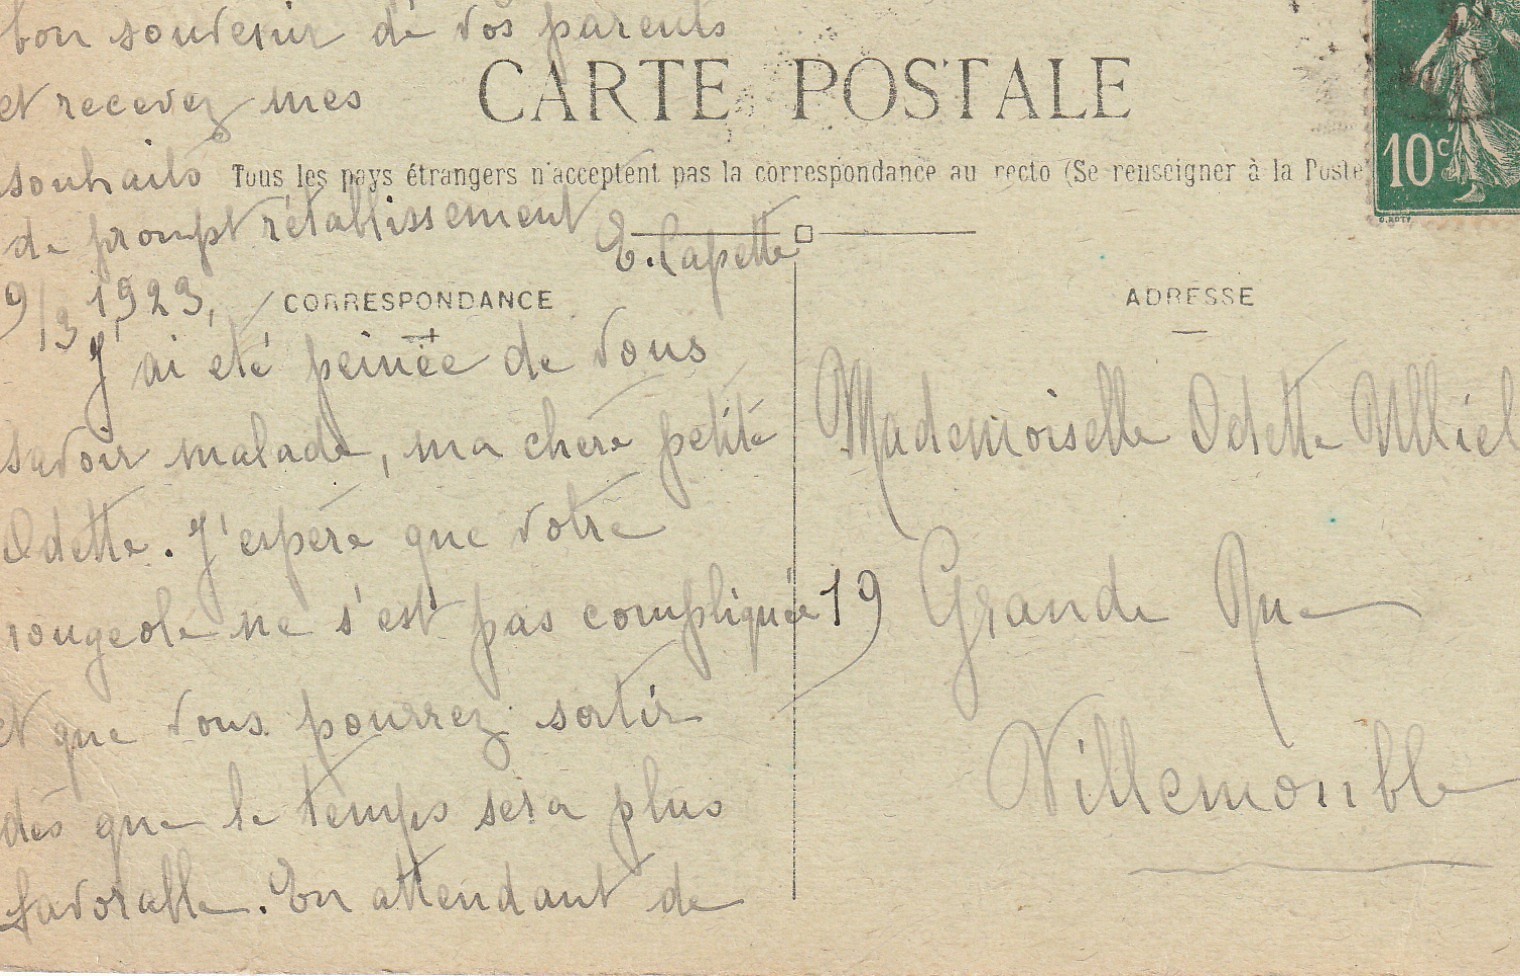 bon souvenir de vos parents
et recevez mes
souhaits
de prompt rétablissement
E. Capette
CARTE POSTALE
Tous les pays étrangers n'acceptent pas la correspondance au recto (Se renseigner à la Poste
10c
O. ROTY
CORRESPONDANCE
9/3 1923,
J'ai été peinée de vous
savoir malade, ma chère petite
Odette. J'espère que votre
rougeole ne s'est pas compliquée
et que vous pourrez sortir
dès que le temps sera plus
favorable. En attendant de
ADRESSE
Mademoiselle Odette Ulliel
19 Grande Rue
Villemomble